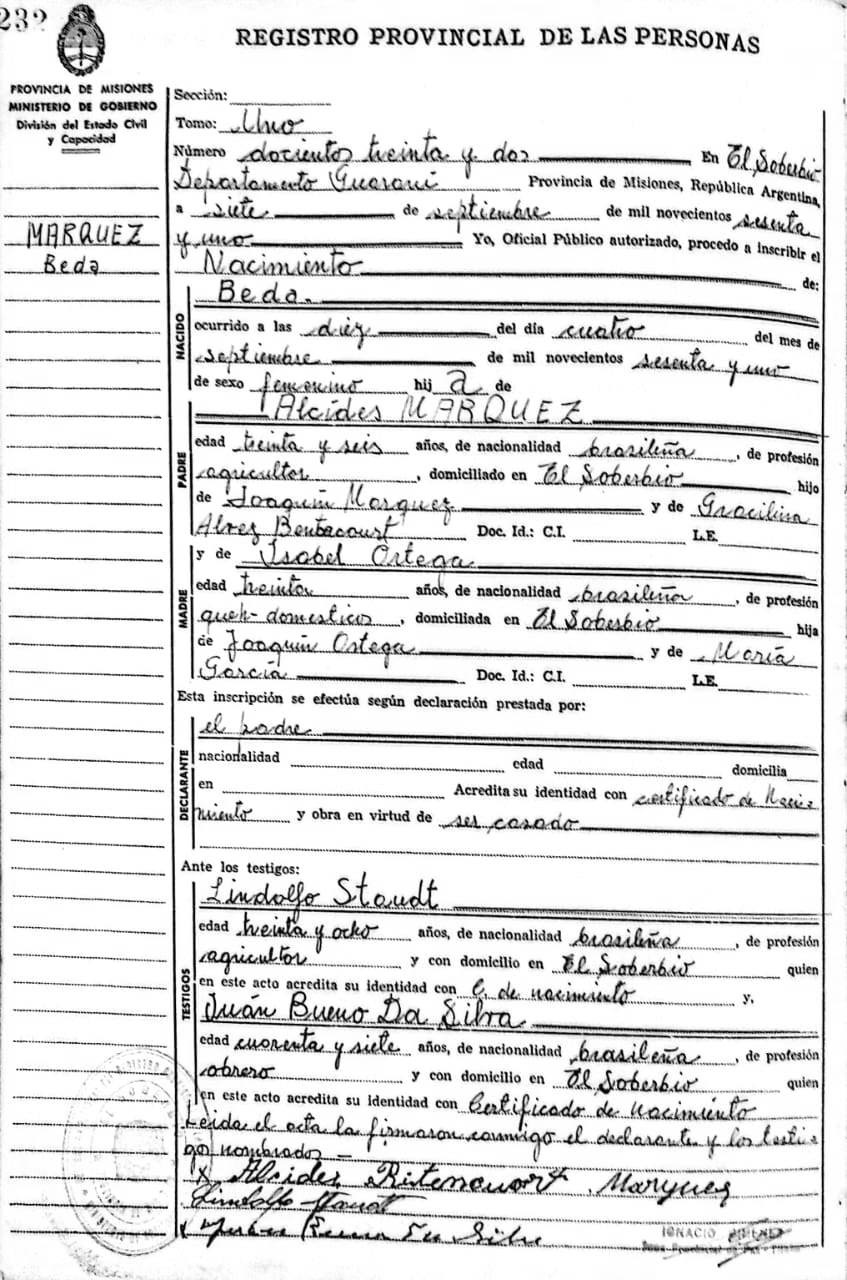 232
REGISTRO PROVINCIAL DE LAS PERSONAS
PROVINCIA DE MISIONES
MINISTERIO DE GOBIERNO
División del Estado Civil
y Capacidad
MARQUEZ
Beda
Sección:
Tomo: Uno
Número docientos treinta y dos En El Soberbio
Departamento Guarani Provincia de Misiones, República Argentina,
a siete de septiembre de mil novecientos sesenta
y uno Yo, Oficial Público autorizado, procedo a inscribir el
Nacimiento de:
NACIDO
Beda.
ocurrido a las diez del día cuatro del mes de
septiembre de mil novecientos sesenta y uno
de sexo femenino hij a de
PADRE
Alcides MARQUEZ
edad treinta y seis años, de nacionalidad brasileña, de profesión
agricultor, domiciliado en El Soberbio hijo
de Joaquín Marquez y de Gracilina
Alvez Bentacourt Doc. Id.: C.I. L.E.
MADRE
y de Isabel Ortega
edad treinta años, de nacionalidad brasileña, de profesión
queh-domesticos, domiciliada en El Soberbio hija
de Joaquín Ortega y de María
García Doc. Id.: C.I. L.E.
Esta inscripción se efectúa según declaración prestada por:
DECLARANTE
el padre
nacionalidad edad domicilia
en Acredita su identidad con certificado de Naci-
miento y obra en virtud de ser casado
Ante los testigos:
TESTIGOS
Lindolfo Staudt
edad treinta y ocho años, de nacionalidad brasileña, de profesión
agricultor y con domicilio en El Soberbio quien
en este acto acredita su identidad con C. de nacimiento y,
Juán Bueno Da Silva
edad cuarenta y siete años, de nacionalidad brasileña, de profesión
obrero y con domicilio en El Soberbio quien
en este acto acredita su identidad con Certificado de nacimiento
Leida el acta la firmaron conmigo el declarante y los testi-
gos nombrados —
x Alcides Bitencourt Marques
Lindolfo Staudt
x Juan Bueno Da Silva
IGNACIO JIMENEZ